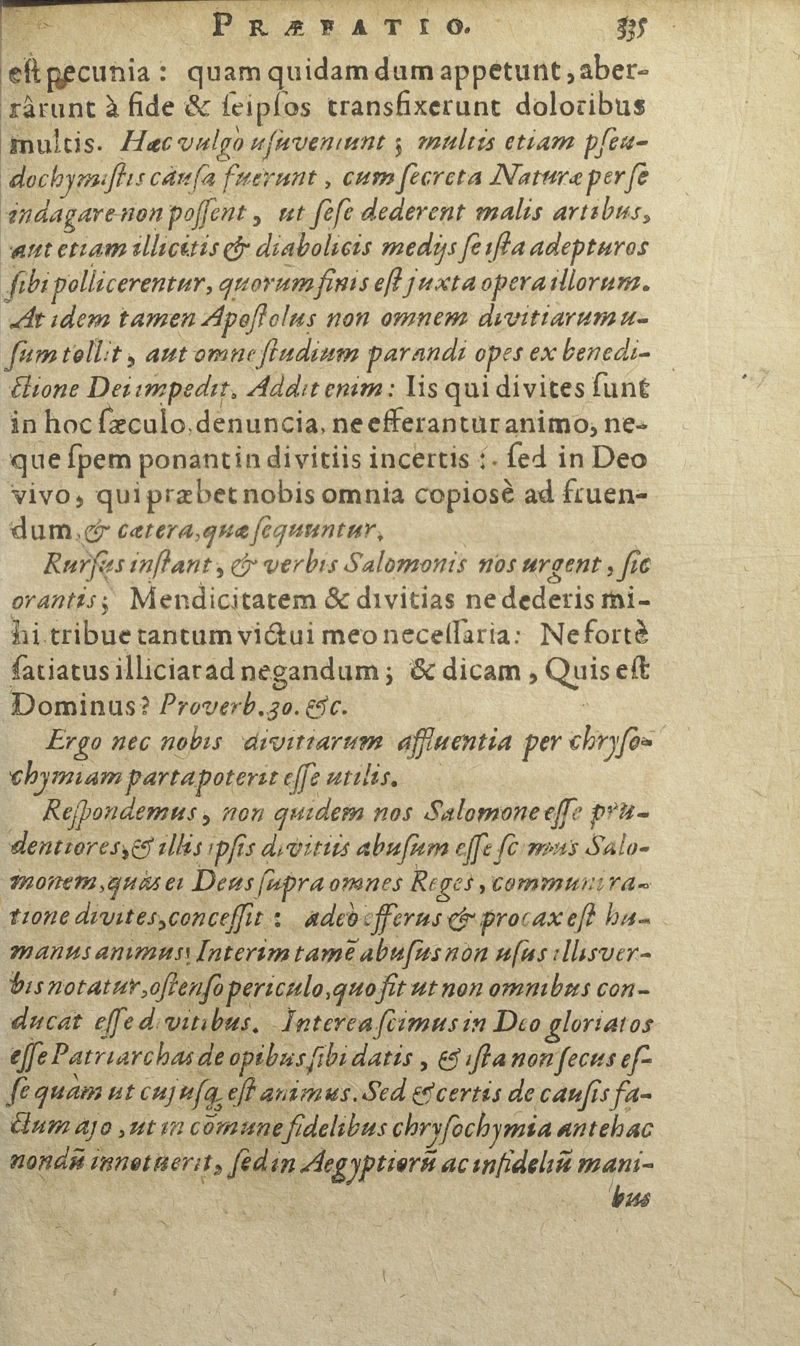 PRÆFATIO. 335
eſt pecunia : quam quidam dum appetunt, aber-
rârunt à fide & ſeipſos transfixerunt doloribus
multis. Hæc vulgò uſuveniunt ; multis etiam pſeu-
dochymiſtis cauſa fuerunt, cum ſecreta Naturæ per ſe
indagare non poſſent, ut ſeſe dederent malis artibus,
aut etiam illicitis & diabolicis medijs ſe iſta adepturos
ſibi pollicerentur, quorum finis eſt juxta opera illorum.
At idem tamen Apoſtolus non omnem divitiarum u-
ſum tollit, aut omne ſtudium parandi opes ex benedi-
ctione Dei impedit. Addit enim : Iis qui divites ſunt
in hoc ſæculo, denuncia, ne efferantur animo, ne-
que ſpem ponant in divitiis incertis : ſed in Deo
vivo, qui præbet nobis omnia copiosè ad fruen-
dum, & cætera, quæ ſequuntur.
Rurſus inſtant, & verbis Salomonis nos urgent, ſic
orantis ; Mendicitatem & divitias ne dederis mi-
hi tribue tantum victui meo neceſſaria : Ne fortè
ſatiatus illiciar ad negandum ; & dicam, Quis eſt
Dominus? Proverb. 30. &c.
Ergo nec nobis divitiarum affluentia per chryſo-
chymiam parta poterit eſſe utilis.
Reſpondemus, non quidem nos Salomone eſſe pru-
dentiores, & illis ipſis divitiis abuſum eſſe ſcimus Salo-
monem, quas ei Deus ſupra omnes Reges, communi ra-
tione divites, conceſſit : adeò efferus & procax eſt hu-
manus animus: Interim tamē abuſus non uſus illis ver-
bis notatur, oſtenſo periculo, quo fit ut non omnibus con-
ducat eſſe divitibus. Interea ſcimus in Deo gloriatos
eſſe Patriarchas de opibus ſibi datis, & iſta non ſecus eſ-
ſe quàm ut cujuſq; eſt animus. Sed & certis de cauſis fa-
ctum ajo, ut in cōmune fidelibus chryſochymia antehac
nondū innotuerit, ſed in Aegyptiorū ac infideliū mani-
bus